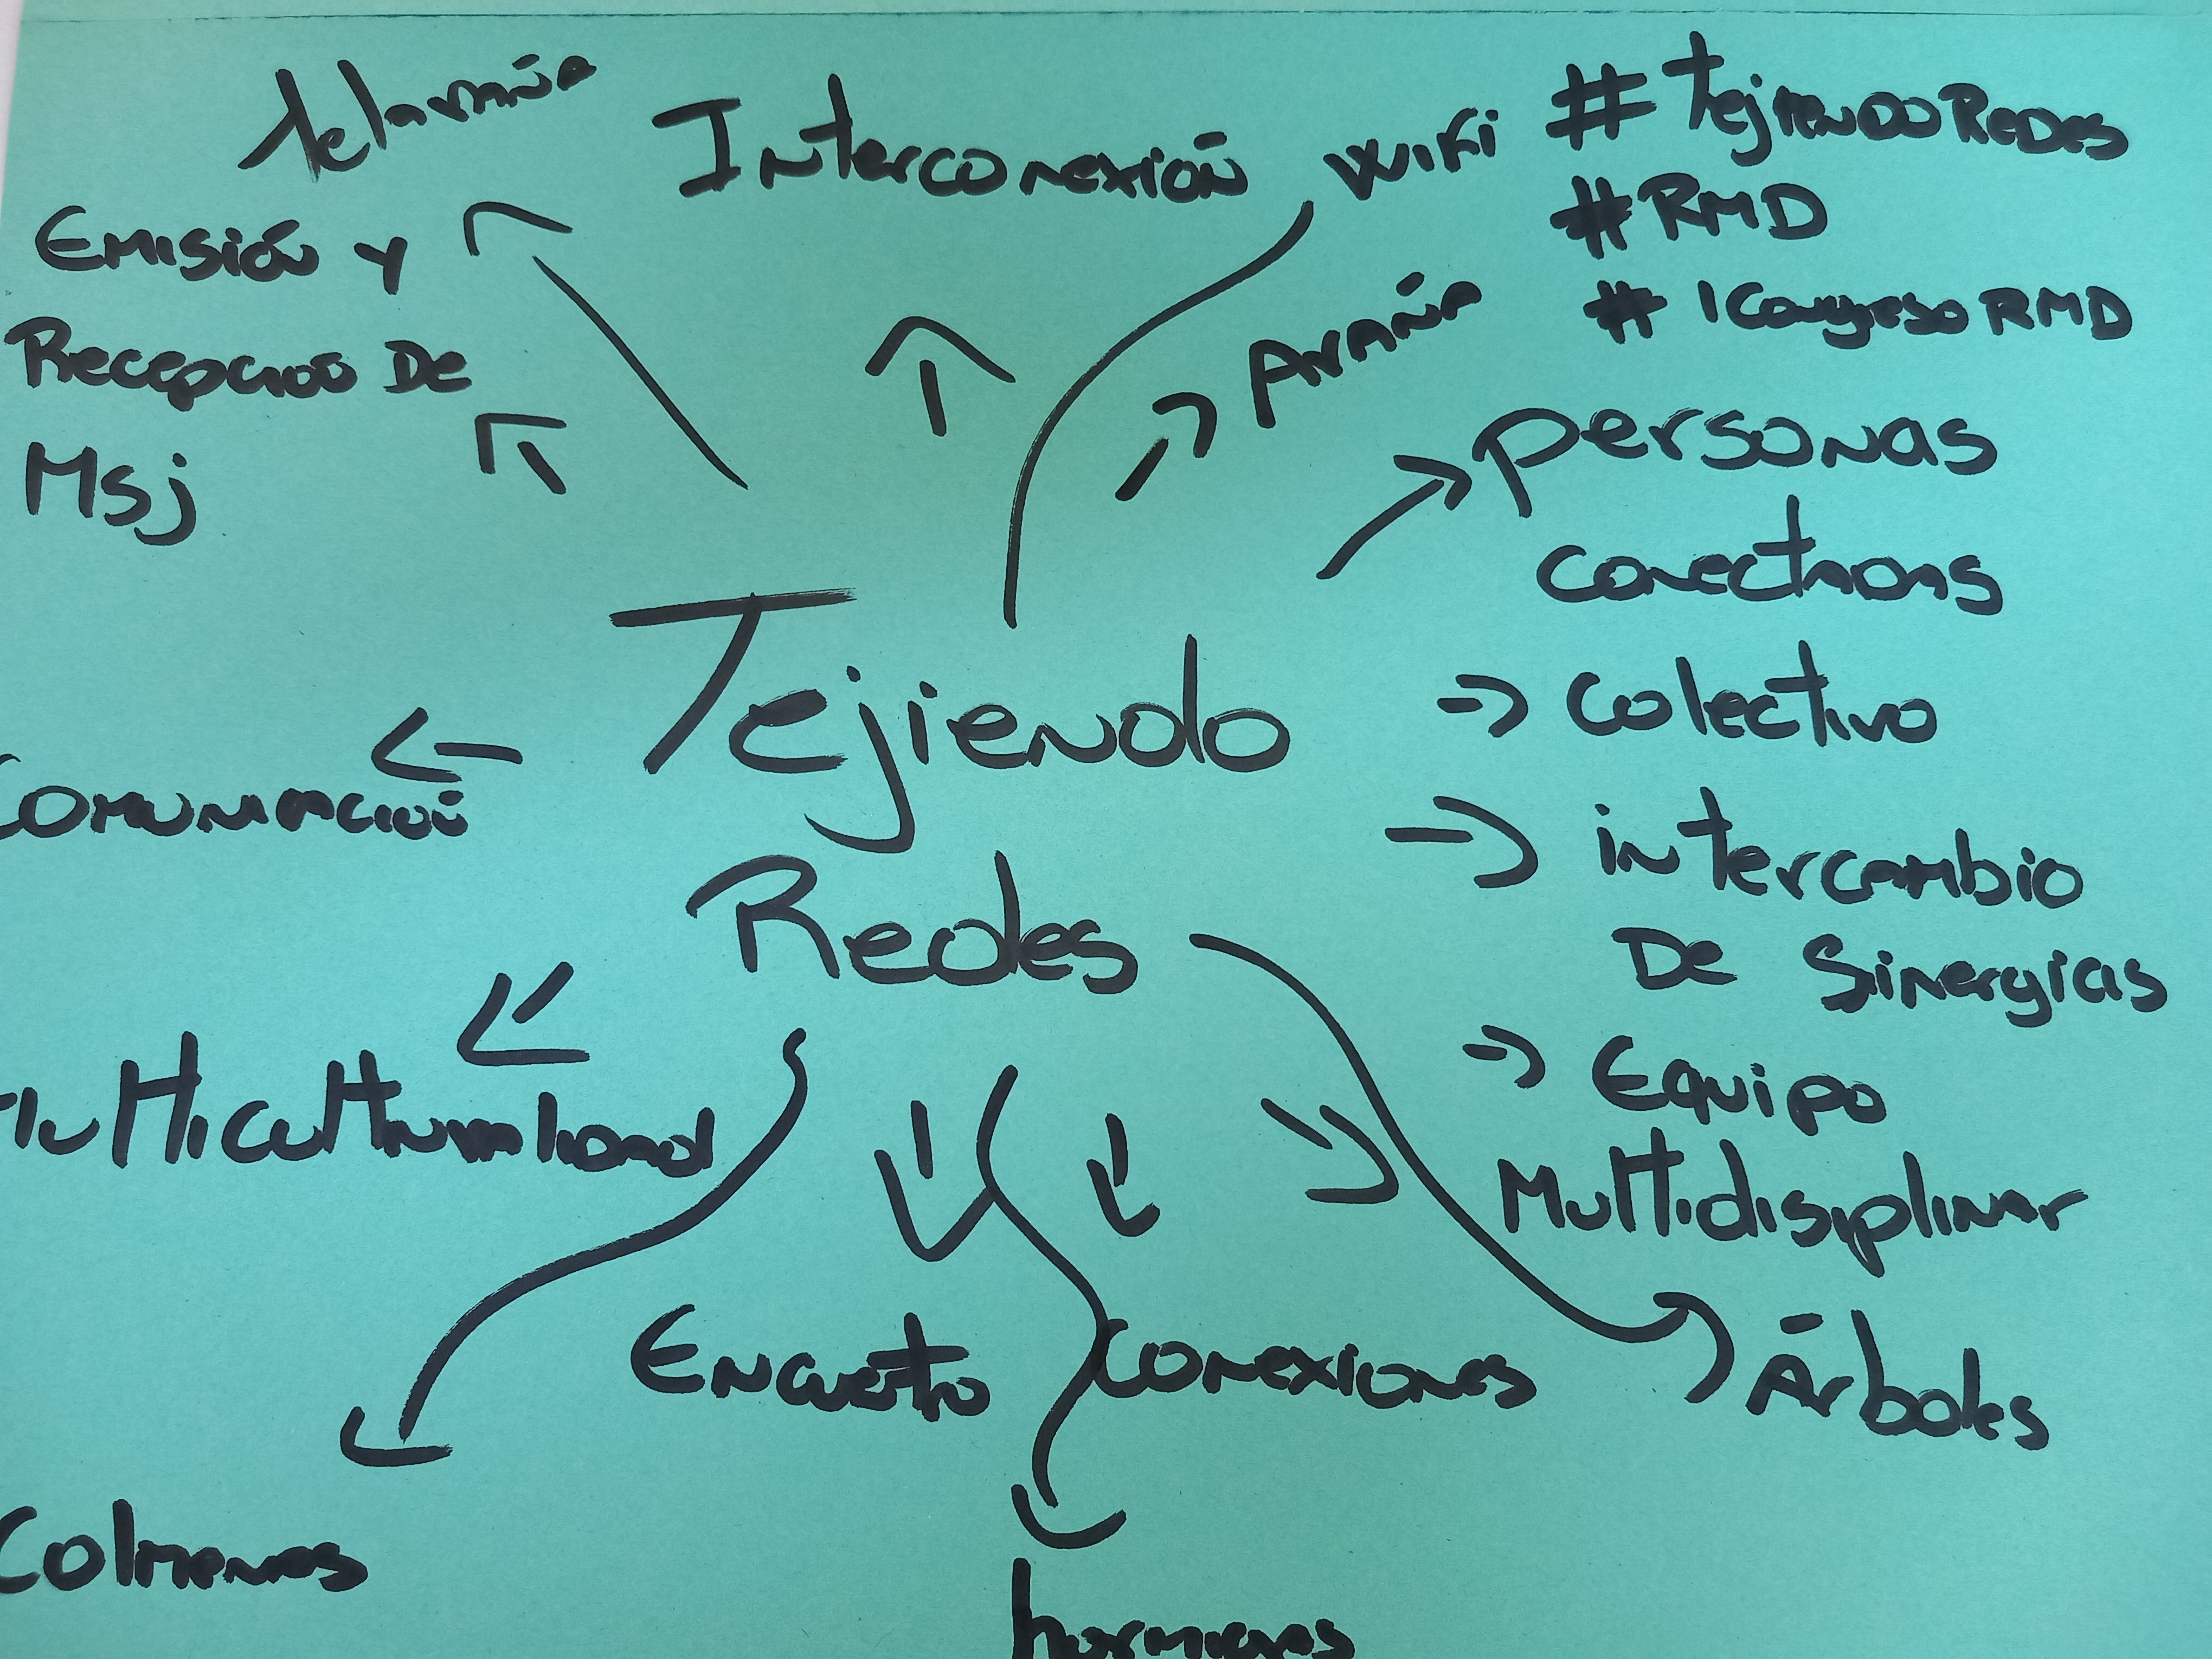 telaraña
Interconexión
wifi
#TejiendoRedes
#RMD
#1CongresoRMD
Emisión y
Recepción De
Msj
Araña
personas
conectadas
Tejiendo
Redes
colectivo
intercambio
De Sinergias
Equipo
Multidisiplinar
Comunicación
Multiculturalidad
Encuetro
Conexiones
Árboles
Colmenas
hormigas